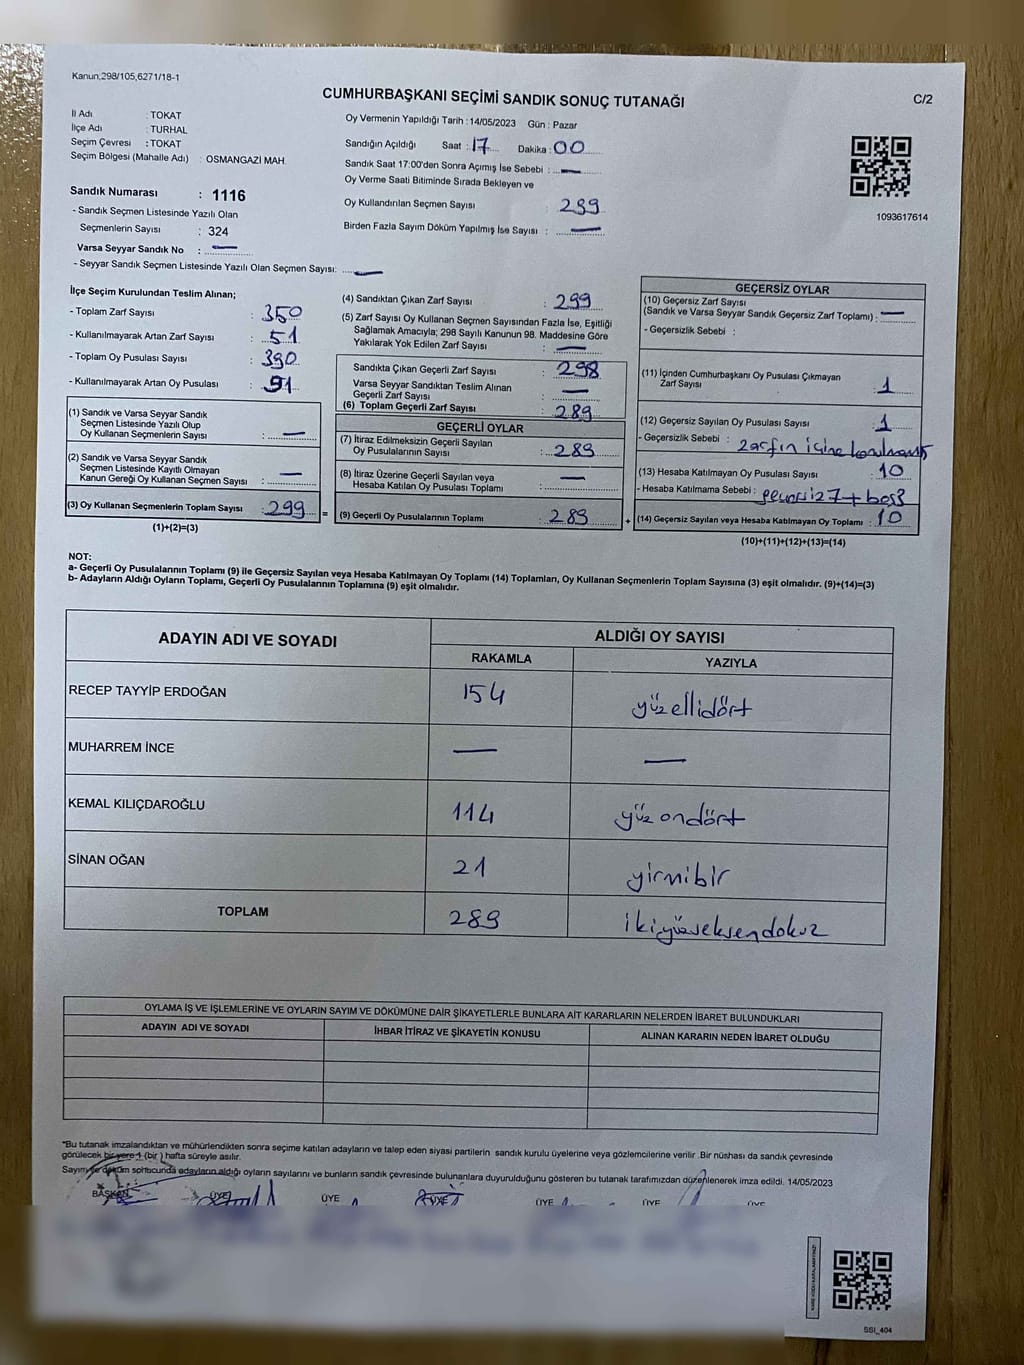 Kanun;298/105,6271/18-1
CUMHURBAŞKANI SEÇİMİ SANDIK SONUÇ TUTANAĞI
C/2
İl Adı : TOKAT
İlçe Adı : TURHAL
Seçim Çevresi : TOKAT
Seçim Bölgesi (Mahalle Adı) : OSMANGAZİ MAH.
Oy Vermenin Yapıldığı Tarih : 14/05/2023 Gün : Pazar
Sandığın Açıldığı Saat : 17 Dakika : 00
Sandık Saat 17:00'den Sonra Açımış İse Sebebi : —
Oy Verme Saati Bitiminde Sırada Bekleyen ve
Oy Kullandırılan Seçmen Sayısı : 299
Birden Fazla Sayım Döküm Yapılmış İse Sayısı : —
1093617614
Sandık Numarası : 1116
- Sandık Seçmen Listesinde Yazılı Olan
Seçmenlerin Sayısı : 324
Varsa Seyyar Sandık No : —
- Seyyar Sandık Seçmen Listesinde Yazılı Olan Seçmen Sayısı: —
İlçe Seçim Kurulundan Teslim Alınan;
- Toplam Zarf Sayısı : 350
- Kullanılmayarak Artan Zarf Sayısı : 51
- Toplam Oy Pusulası Sayısı : 390
- Kullanılmayarak Artan Oy Pusulası : 91
(1) Sandık ve Varsa Seyyar Sandık
Seçmen Listesinde Yazılı Olup
Oy Kullanan Seçmenlerin Sayısı : —
(2) Sandık ve Varsa Seyyar Sandık
Seçmen Listesinde Kayıtlı Olmayan
Kanun Gereği Oy Kullanan Seçmen Sayısı : —
(3) Oy Kullanan Seçmenlerin Toplam Sayısı : 299 =
(1)+(2)=(3)
(4) Sandıktan Çıkan Zarf Sayısı : 299
(5) Zarf Sayısı Oy Kullanan Seçmen Sayısından Fazla İse, Eşitliği
Sağlamak Amacıyla; 298 Sayılı Kanunun 98. Maddesine Göre
Yakılarak Yok Edilen Zarf Sayısı : —
Sandıkta Çıkan Geçerli Zarf Sayısı : 298
Varsa Seyyar Sandıktan Teslim Alınan
Geçerli Zarf Sayısı : —
(6) Toplam Geçerli Zarf Sayısı : 289
GEÇERLİ OYLAR
(7) İtiraz Edilmeksizin Geçerli Sayılan
Oy Pusulalarının Sayısı : 289
(8) İtiraz Üzerine Geçerli Sayılan veya
Hesaba Katılan Oy Pusulası Toplamı : —
(9) Geçerli Oy Pusulalarının Toplamı : 289 +
GEÇERSİZ OYLAR
(10) Geçersiz Zarf Sayısı
(Sandık ve Varsa Seyyar Sandık Geçersiz Zarf Toplamı) : —
- Geçersizlik Sebebi :
(11) İçinden Cumhurbaşkanı Oy Pusulası Çıkmayan
Zarf Sayısı : 1
(12) Geçersiz Sayılan Oy Pusulası Sayısı : 1
- Geçersizlik Sebebi : zarfın içine
(13) Hesaba Katılmayan Oy Pusulası Sayısı : 10
- Hesaba Katılmama Sebebi : geçersiz 7 + boş 3
(14) Geçersiz Sayılan veya Hesaba Katılmayan Oy Toplamı : 10
(10)+(11)+(12)+(13)=(14)
NOT:
a- Geçerli Oy Pusulalarının Toplamı (9) ile Geçersiz Sayılan veya Hesaba Katılmayan Oy Toplamı (14) Toplamları, Oy Kullanan Seçmenlerin Toplam Sayısına (3) eşit olmalıdır. (9)+(14)=(3)
b- Adayların Aldığı Oyların Toplamı, Geçerli Oy Pusulalarının Toplamına (9) eşit olmalıdır.
ADAYIN ADI VE SOYADI ALDIĞI OY SAYISI
RAKAMLA YAZIYLA
RECEP TAYYİP ERDOĞAN 154 yüzellidört
MUHARREM İNCE — —
KEMAL KILIÇDAROĞLU 114 yüzondört
SİNAN OĞAN 21 yirmibir
TOPLAM 289 ikiyüzseksendokuz
OYLAMA İŞ VE İŞLEMLERİNE VE OYLARIN SAYIM VE DÖKÜMÜNE DAİR ŞİKAYETLERLE BUNLARA AİT KARARLARIN NELERDEN İBARET BULUNDUKLARI
ADAYIN ADI VE SOYADI İHBAR İTİRAZ VE ŞİKAYETİN KONUSU ALINAN KARARIN NEDEN İBARET OLDUĞU
"Bu tutanak imzalandıktan ve mühürlendikten sonra seçime katılan adayların ve talep eden siyasi partilerin sandık kurulu üyelerine veya gözlemcilerine verilir. Bir nüshası da sandık çevresinde
görülecek bir yere 1 (bir) hafta süreyle asılır.
Sayım ve döküm sonucunda adayların aldığı oyların sayılarını ve bunların sandık çevresinde bulunanlara duyurulduğunu gösteren bu tutanak tarafımızdan düzenlenerek imza edildi. 14/05/2023
BAŞKAN ÜYE ÜYE ÜYE ÜYE ÜYE ÜYE
SSI_404